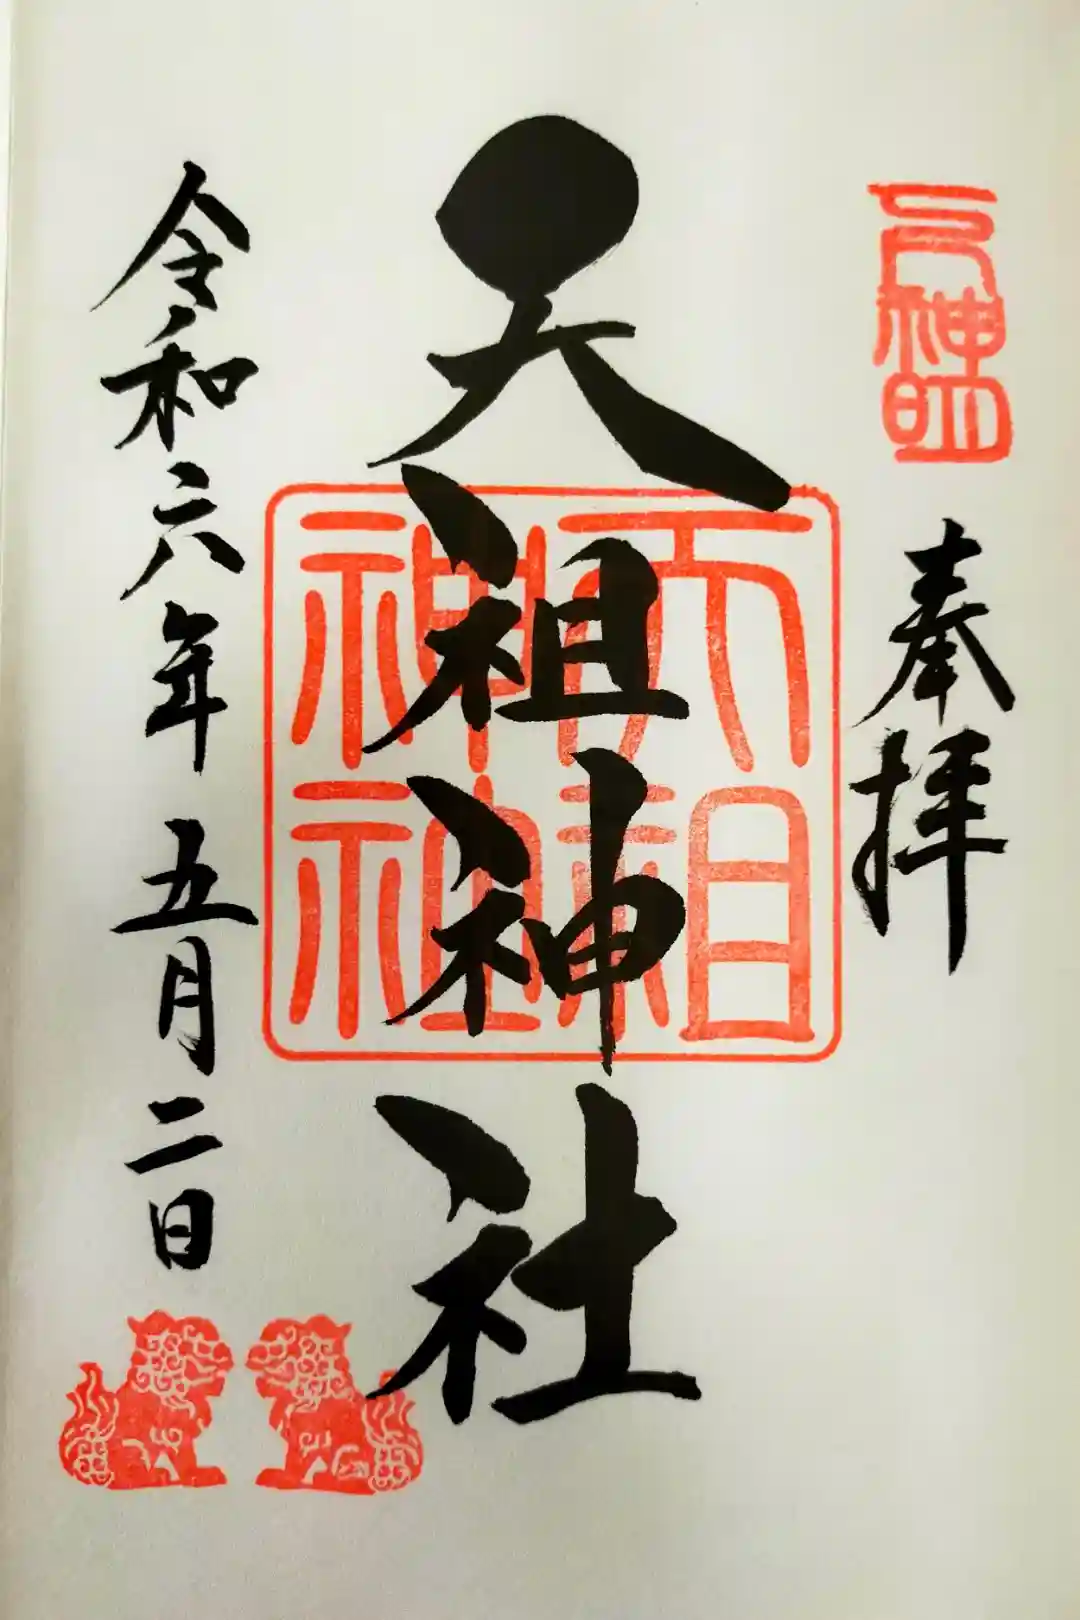 元神明
奉拝
天祖神社
天祖
神社
令和六年五月二日